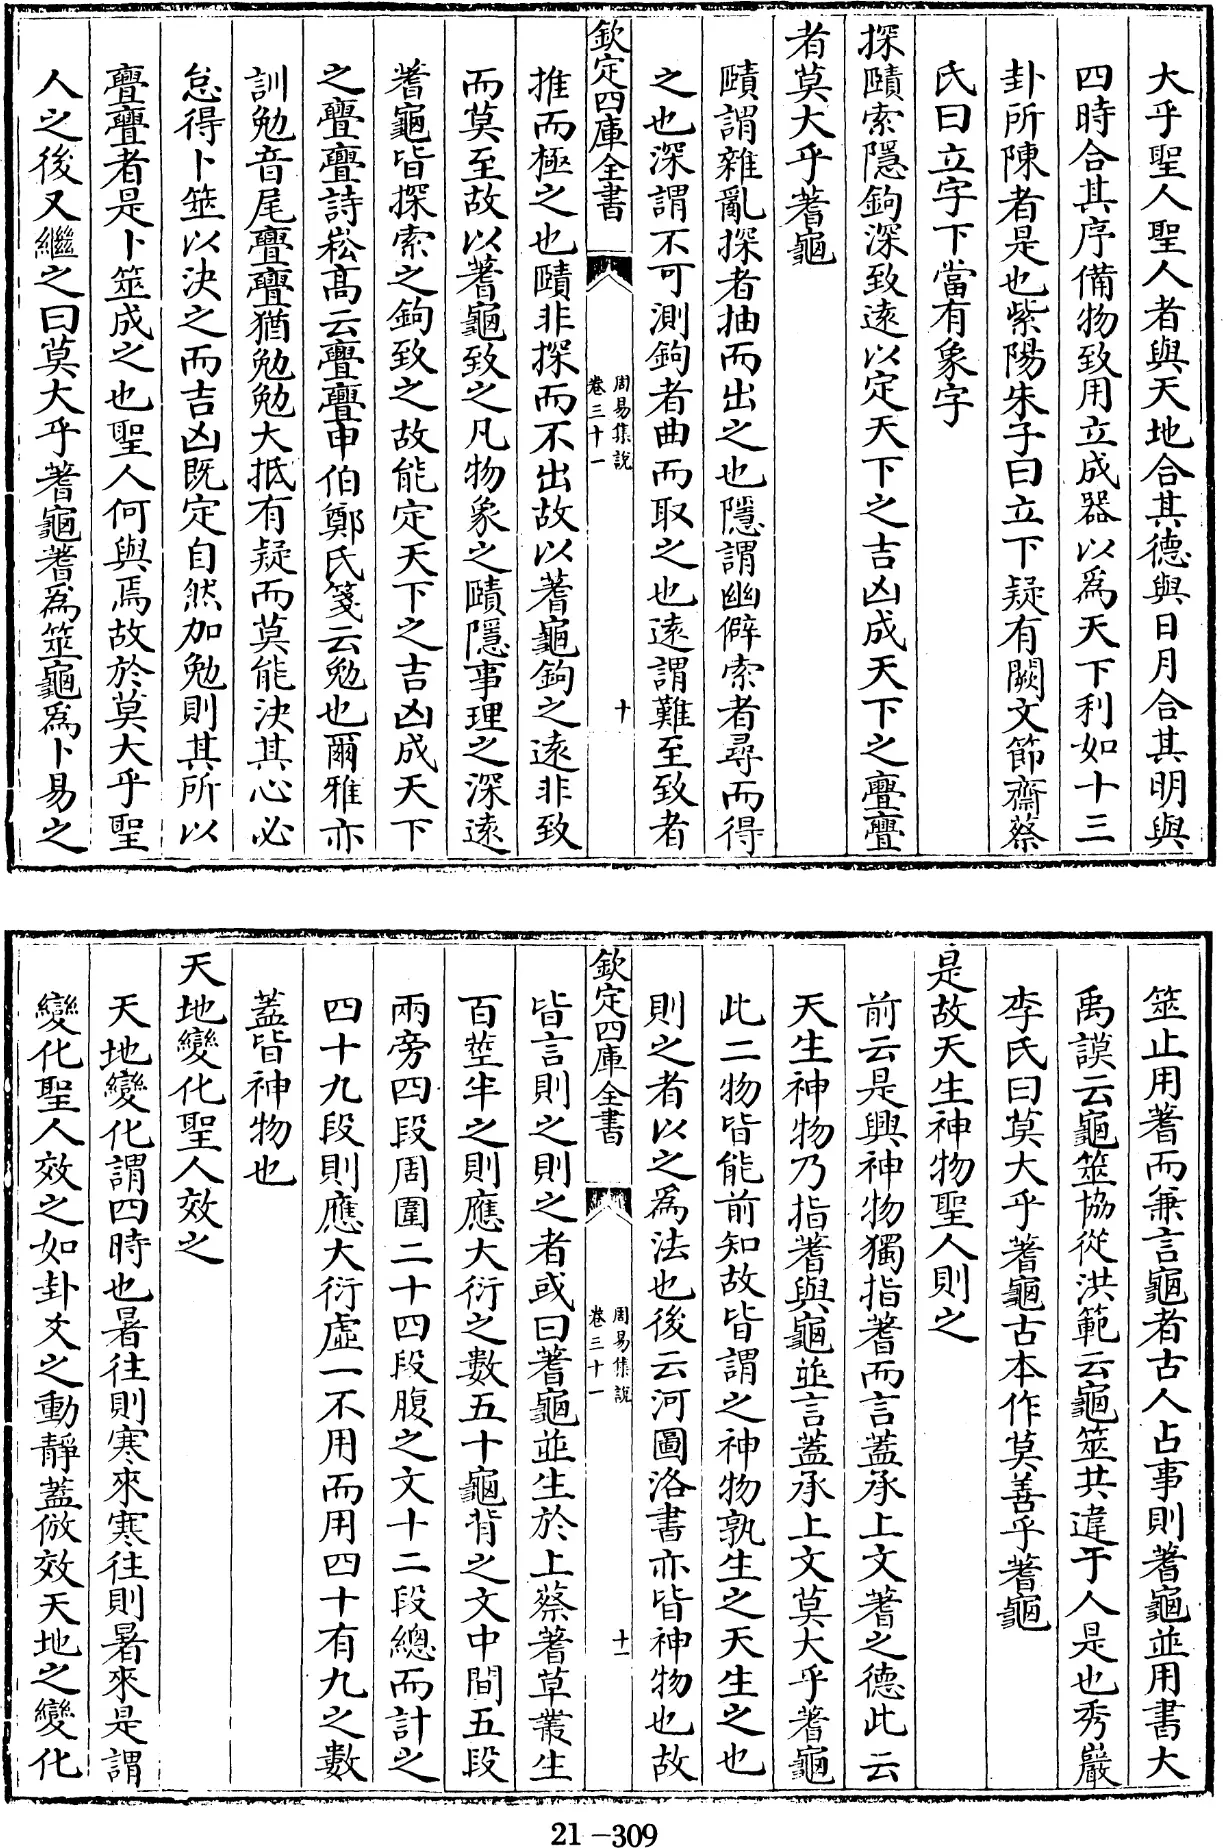 大乎聖人聖人者與天地合其德與日月合其明與
四時合其序備物致用立成器以爲天下利如十三
卦所陳者是也紫陽朱子曰立下疑有闕文節齋蔡
氏曰立字下當有象字
探賾索隱鉤深致遠以定天下之吉凶成天下之亹亹
者莫大乎蓍龜
賾謂雜亂探者抽而出之也隱謂幽僻索者尋而得
之也深謂不可測鉤者曲而取之也遠謂難至致者
欽定四庫全書
周易集說
卷三十一
十
推而極之也賾非探而不出故以蓍龜鉤之遠非致
而莫至故以蓍龜致之凡物象之賾隱事理之深遠
蓍龜皆探索之鉤致之故能定天下之吉凶成天下
之亹亹詩崧高云亹亹申伯鄭氏箋云勉也爾雅亦
訓勉音尾亹亹猶勉勉大抵有疑而莫能決其心必
怠得卜筮以決之而吉凶既定自然加勉則其所以
亹亹者是卜筮成之也聖人何與焉故於莫大乎聖
人之後又繼之曰莫大乎蓍龜蓍爲筮龜爲卜易之
筮止用蓍而兼言龜者古人占事則蓍龜並用書大
禹謨云龜筮協從洪範云龜筮共違于人是也秀巖
李氏曰莫大乎蓍龜古本作莫善乎蓍龜
是故天生神物聖人則之
前云是興神物獨指蓍而言蓋承上文蓍之德此云
天生神物乃指蓍與龜並言蓋承上文莫大乎蓍龜
此二物皆能前知故皆謂之神物孰生之天生之也
則之者以之爲法也後云河圖洛書亦皆神物也故
欽定四庫全書
周易集說
卷三十一
十一
皆言則之則之者或曰蓍龜並生於上蔡蓍草叢生
百莖半之則應大衍之數五十龜背之文中間五段
兩旁四段周圍二十四段腹之文十二段總而計之
四十九段則應大衍虛一不用而用四十有九之數
蓋皆神物也
天地變化聖人效之
天地變化謂四時也暑往則寒來寒往則暑來是謂
變化聖人效之如卦爻之動靜蓋倣效天地之變化
21-309